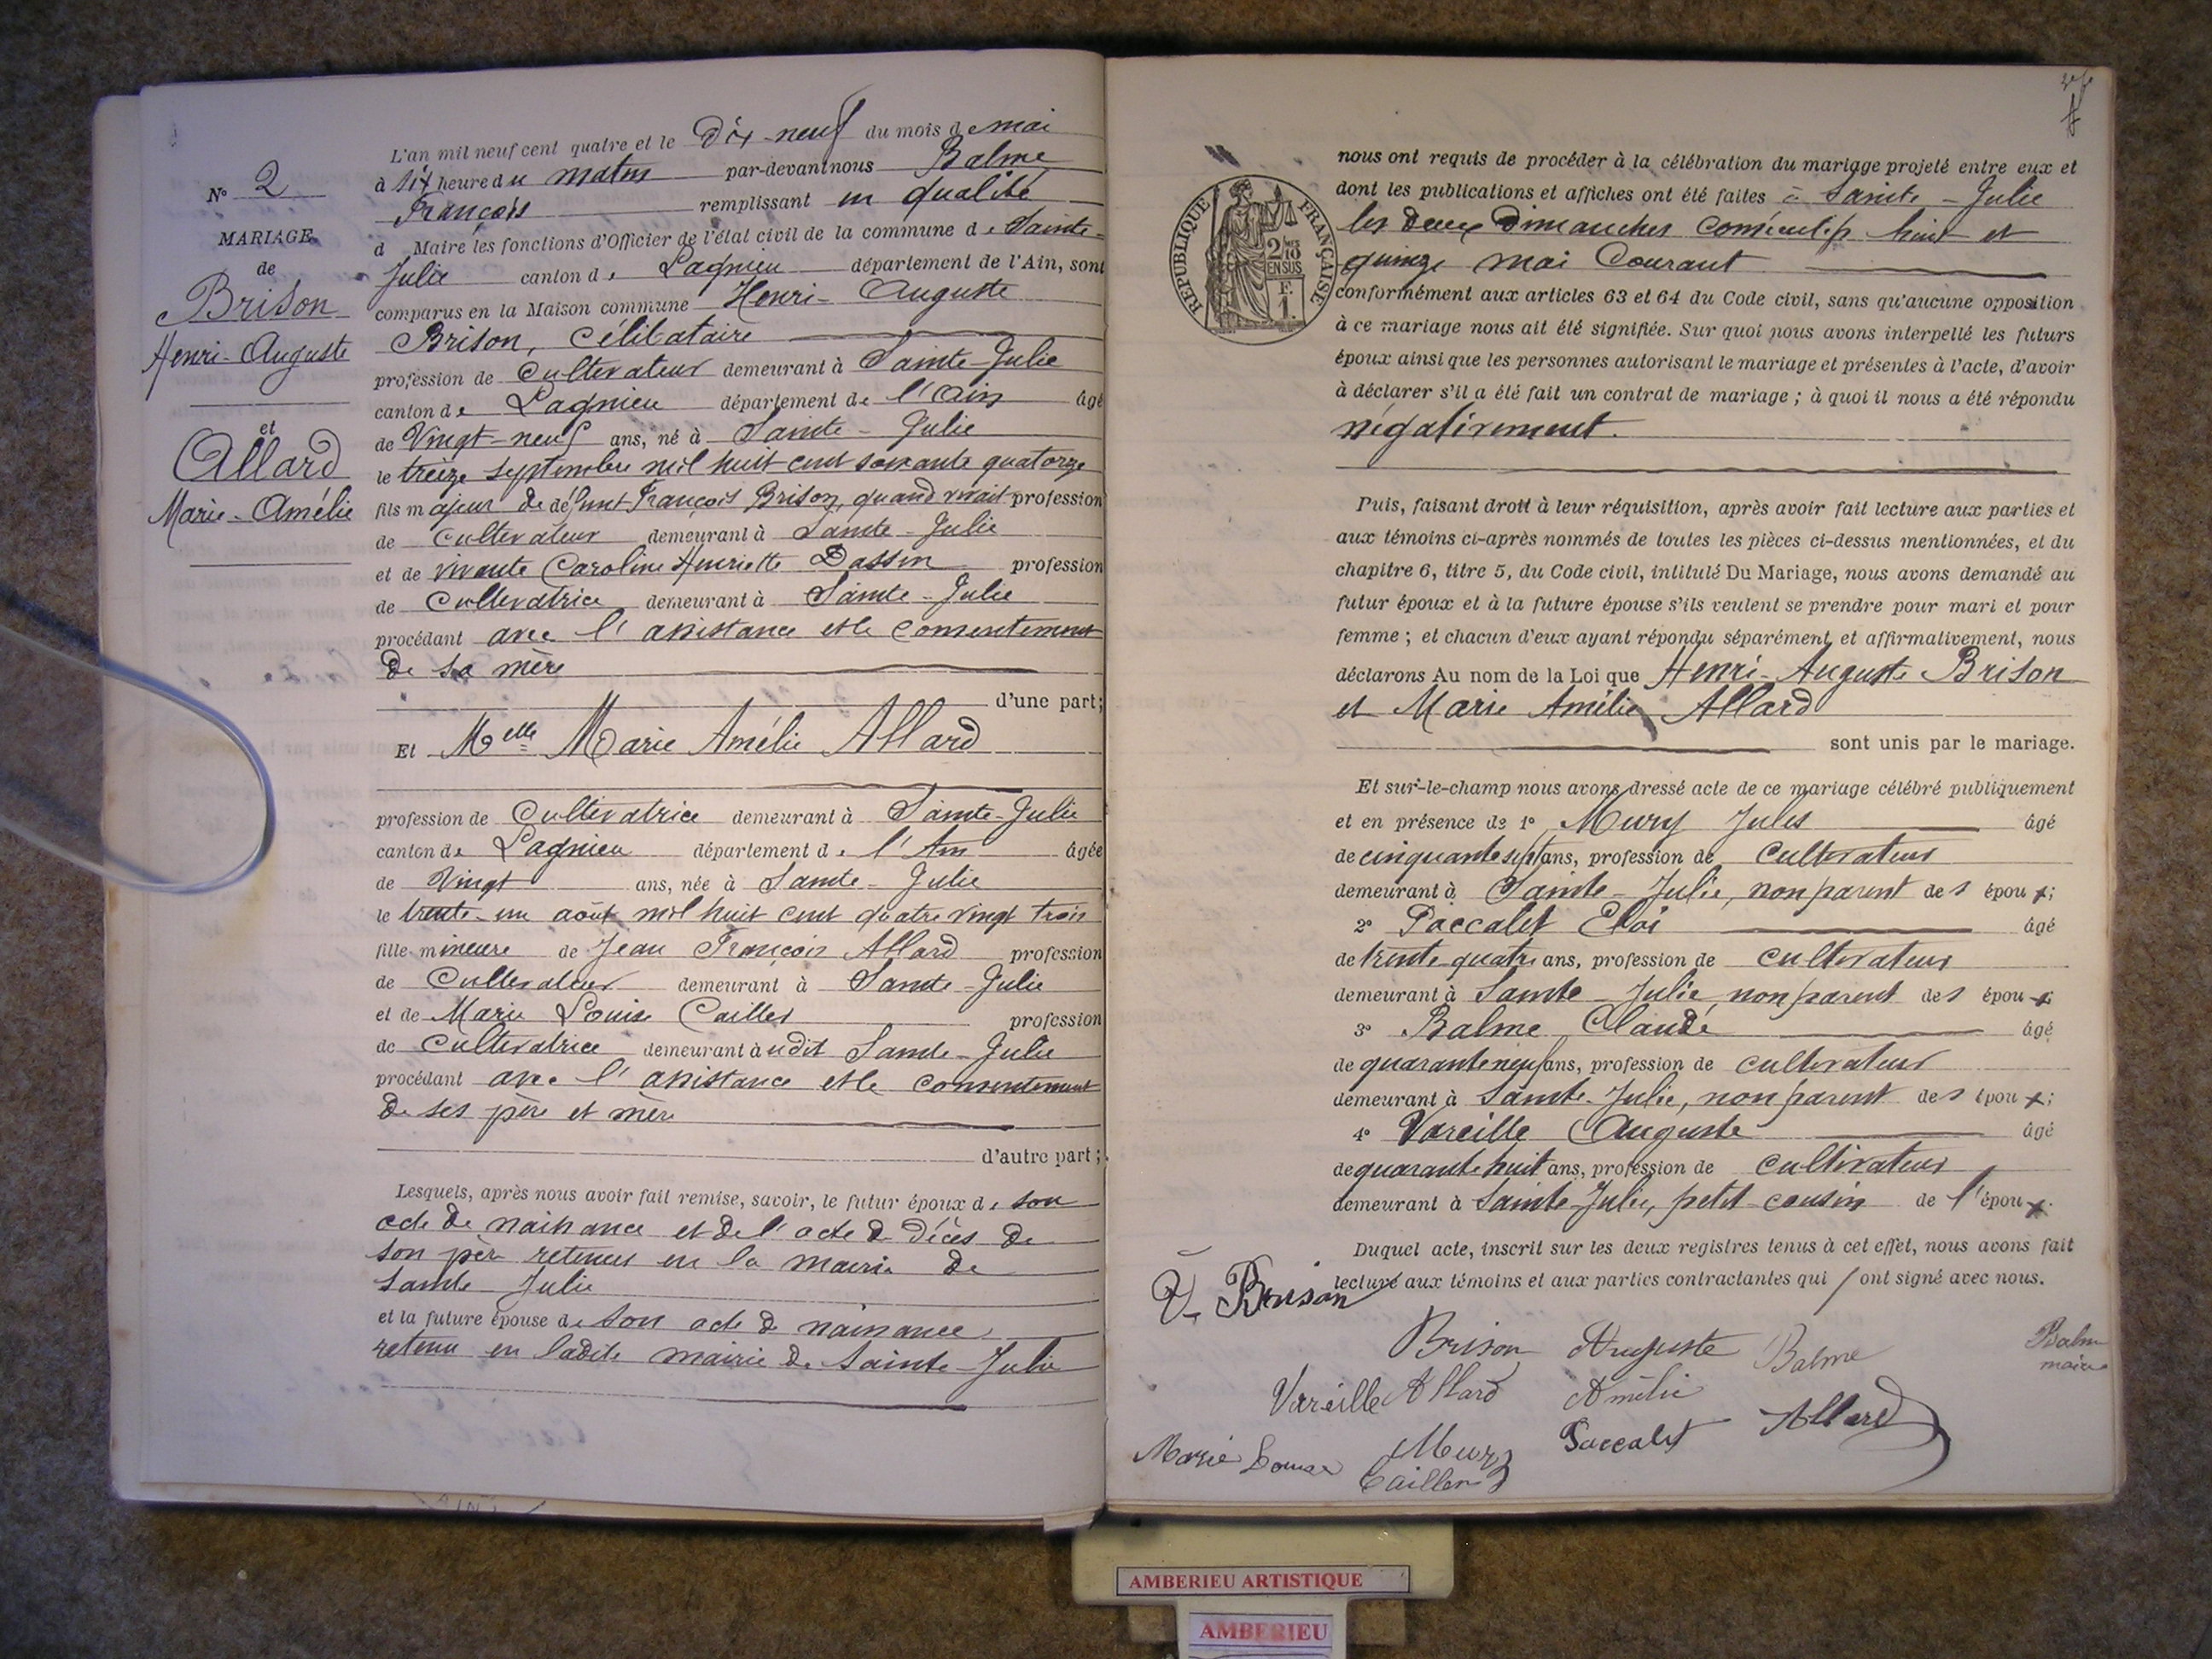 N° 2
MARIAGE
de
Brison
Henri-Auguste
et
Allard
Marie-Amélie
L'an mil neuf cent quatre et le Dix-neuf du mois de mai
à six heure du matin par-devant nous Balme
François remplissant en qualité
d Maire les fonctions d'Officier de l'état civil de la commune de Sainte-
Julie canton de Lagnieu département de l'Ain, sont
comparus en la Maison commune Henri-Auguste
Brison, célibataire
profession de Cultivateur demeurant à Sainte-Julie
canton de Lagnieu département de l'Ain âgé
de Vingt-neuf ans, né à Sainte-Julie
le treize septembre mil huit cent soixante quatorze
fils majeur de défunt François Brison, quand vivait profession
de cultivateur demeurant à Sainte-Julie
et de vivante Caroline Henriette Dassin profession
de Cultivatrice demeurant à Sainte-Julie
procédant avec l'assistance et le consentement
de sa mère
d'une part;
Et Melle Marie Amélie Allard
profession de Cultivatrice demeurant à Sainte-Julie
canton de Lagnieu département de l'Ain âgée
de Vingt ans, née à Sainte-Julie
le trente-un août mil huit cent quatre vingt trois
fille mineure de Jean François Allard profession
de Cultivateur demeurant à Sainte-Julie
et de Marie Louise Cailler profession
de Cultivatrice demeurant àudit Sainte-Julie
procédant avec l'assistance et le consentement
de ses père et mère
d'autre part;
Lesquels, après nous avoir fait remise, savoir, le futur époux de son
acte de naissance et de l'acte de décès de
son père retenus en la mairie de
Sainte Julie
et la future épouse de son acte de naissance
retenu en ladite mairie de Sainte-Julie
RÉPUBLIQUE FRANÇAISE
2/10
EN SUS
F.
1.
nous ont requis de procéder à la célébration du mariage projeté entre eux et
dont les publications et affiches ont été faites à Sainte-Julie
les deux Dimanches consécutifs huit et
quinze mai Courant
conformément aux articles 63 et 64 du Code civil, sans qu'aucune opposition
à ce mariage nous ait été signifiée. Sur quoi nous avons interpellé les futurs
époux ainsi que les personnes autorisant le mariage et présentes à l'acte, d'avoir
à déclarer s'il a été fait un contrat de mariage; à quoi il nous a été répondu
négativement.
Puis, faisant droit à leur réquisition, après avoir fait lecture aux parties et
aux témoins ci-après nommés de toutes les pièces ci-dessus mentionnées, et du
chapitre 6, titre 5, du Code civil, intitulé Du Mariage, nous avons demandé au
futur époux et à la future épouse s'ils veulent se prendre pour mari et pour
femme; et chacun d'eux ayant répondu séparément et affirmativement, nous
déclarons Au nom de la Loi que Henri-Auguste Brison
et Marie Amélie Allard
sont unis par le mariage.
Et sur-le-champ nous avons dressé acte de ce mariage célébré publiquement
et en présence de 1° Mury Jules âgé
de cinquante sept ans, profession de cultivateur
demeurant à Sainte-Julie, non parent des époux;
2° Paccalet Eloi âgé
de trente-quatre ans, profession de cultivateur
demeurant à Sainte-Julie non parent des époux;
3° Balme Claude âgé
de quarante neuf ans, profession de cultivateur
demeurant à Sainte-Julie, non parent des époux;
4° Vareille Auguste âgé
de quarante huit ans, profession de cultivateur
demeurant à Sainte-Julie, petit-cousin de l'époux.
Duquel acte, inscrit sur les deux registres tenus à cet effet, nous avons fait
lecture aux témoins et aux parties contractantes qui ont signé avec nous.
Brison
Brison Auguste Balme Balme
maire
Vareille Allard Amélie
Marie Louise Mury Paccalet Allard
Cailler
AMBERIEU ARTISTIQUE
AMBERIEU